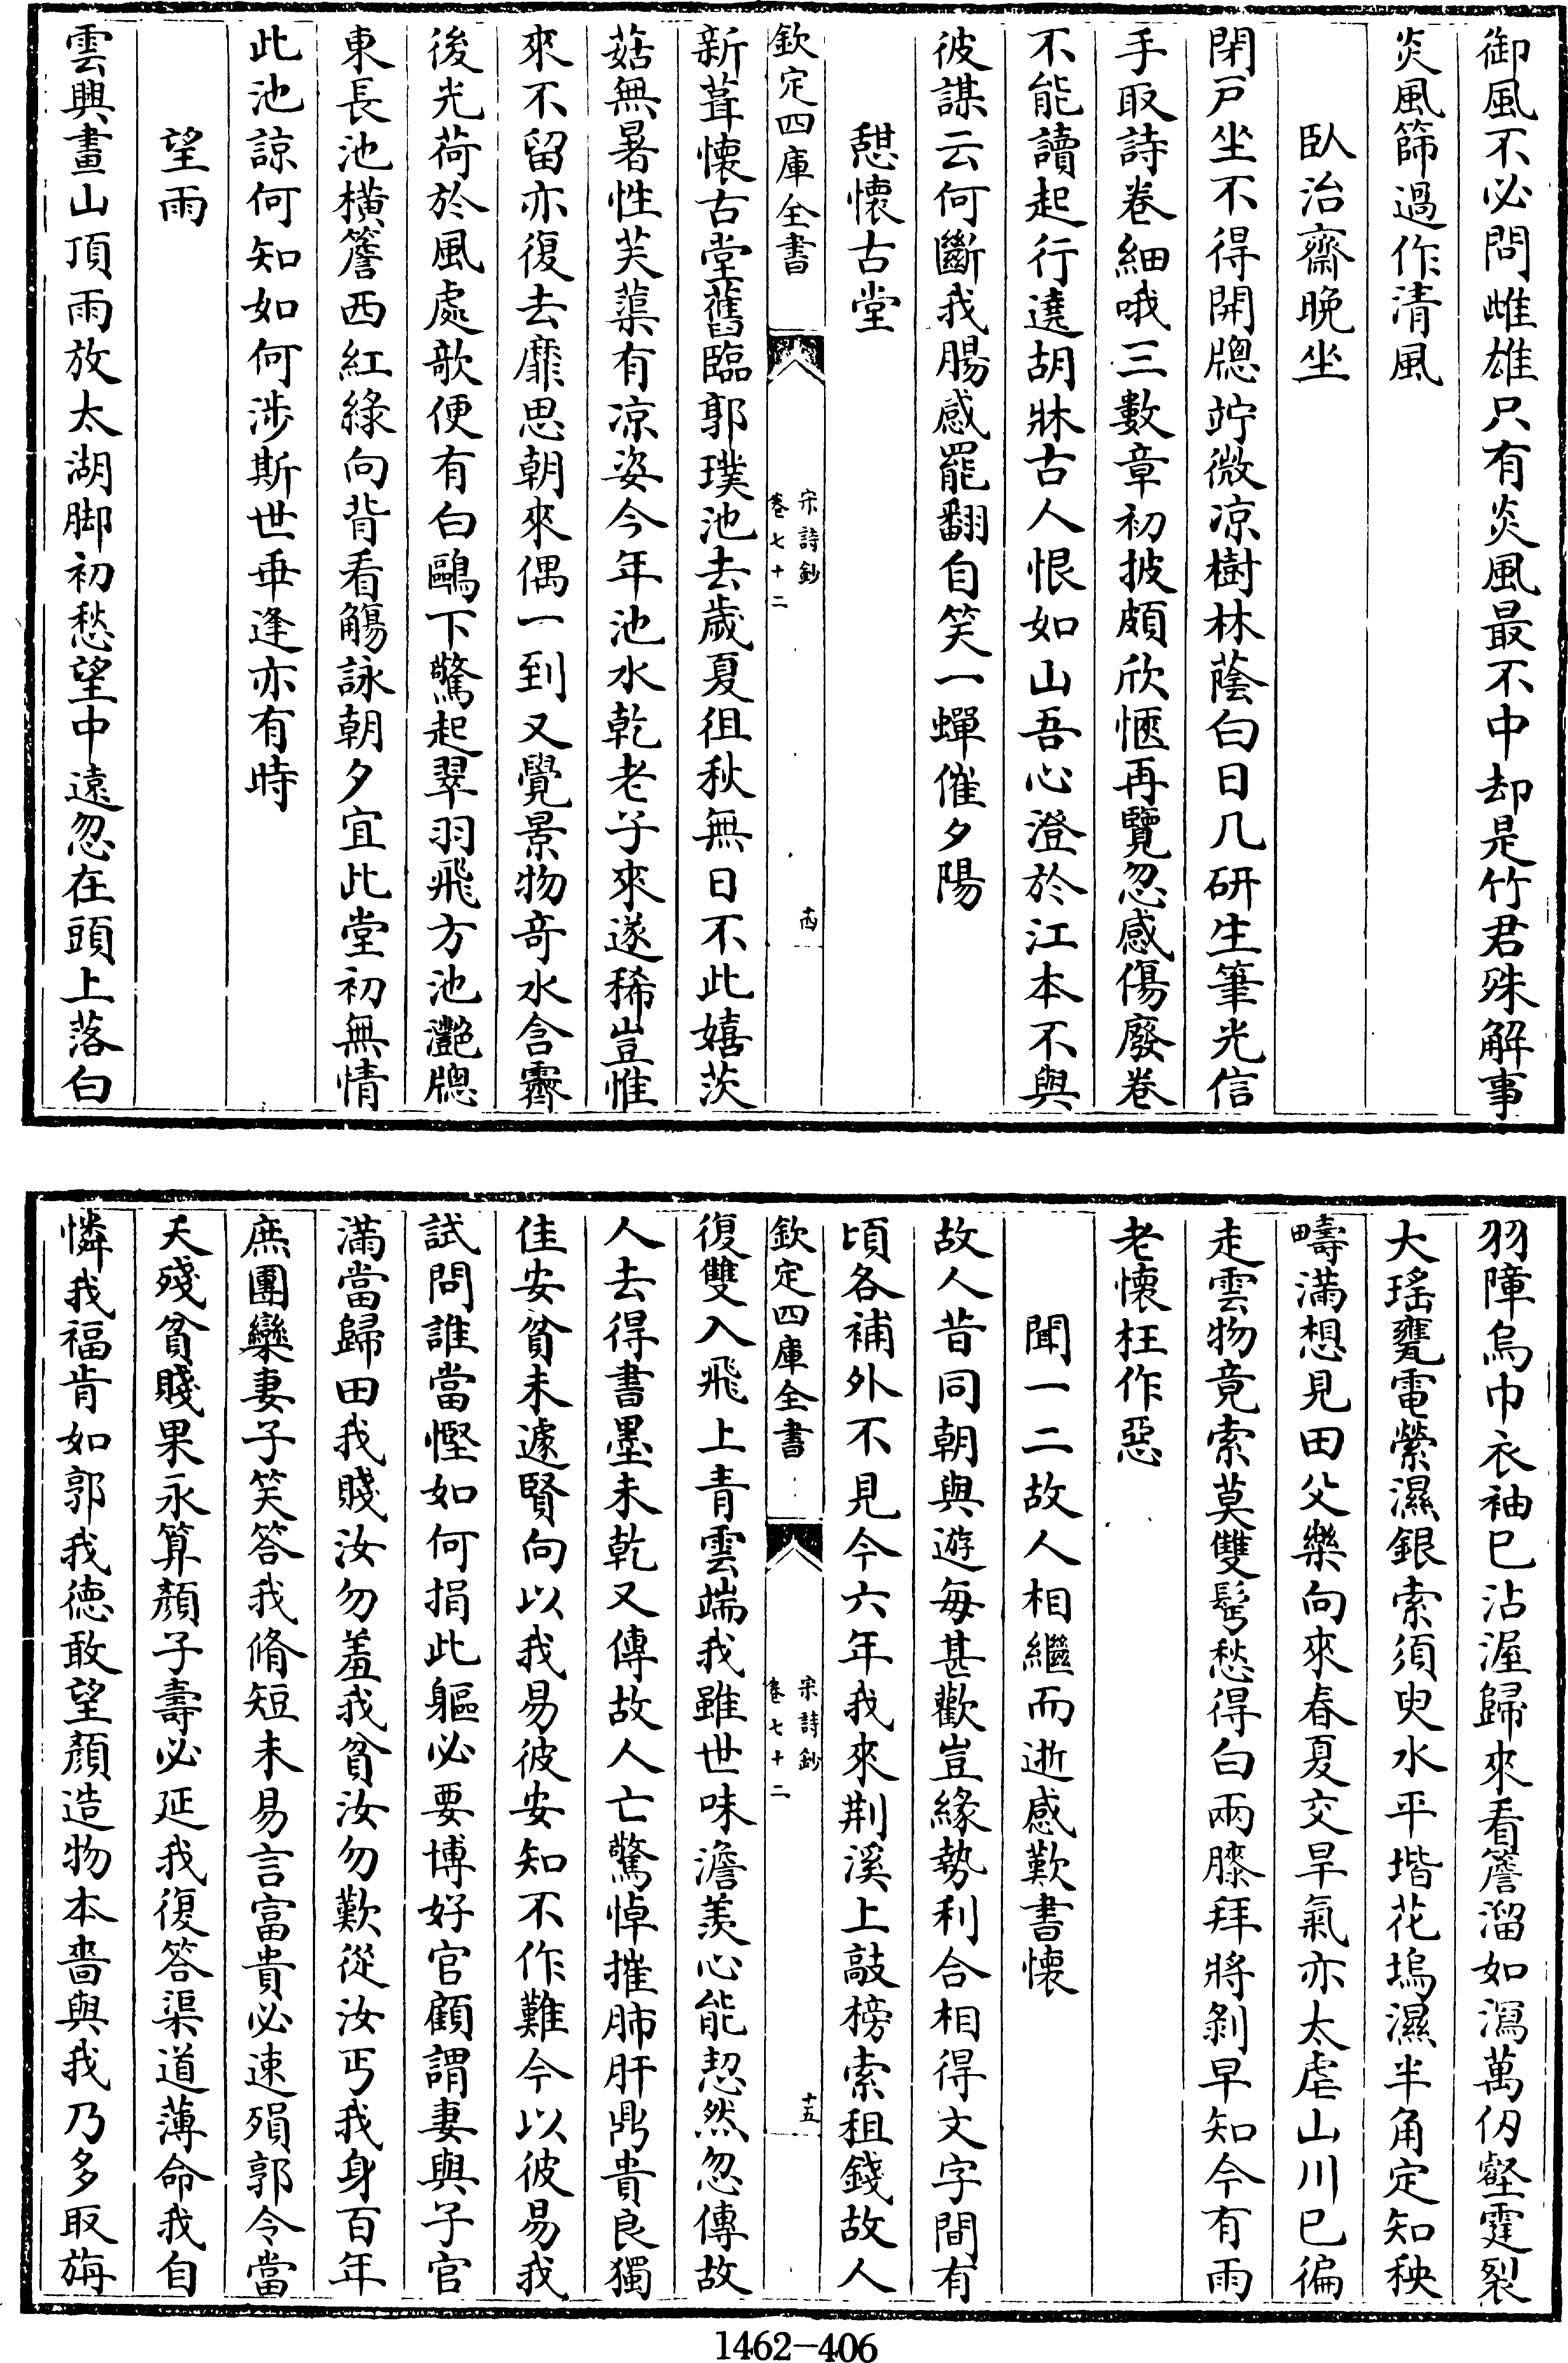 御風不必問雌雄只有炎風最不中却是竹君殊解事
炎風篩過作清風
臥治齋晚坐
閉戸坐不得開牕竚微凉樹林蔭白日几研生筆光信
手取詩卷細哦三數章初披頗欣愜再覽忽感傷廢卷
不能讀起行遶胡牀古人恨如山吾心澄於江本不與
彼謀云何斷我腸感罷翻自笑一蟬催夕陽
憇懷古堂
欽定四庫全書
宋詩鈔
卷七十二
十四
新葺懷古堂舊臨郭璞池去歲夏徂秋無日不此嬉茨
菇無暑性芙蕖有凉姿今年池水乾老子來遂稀豈惟
來不留亦復去靡思朝來偶一到又覺景物竒水含霽
後光荷於風處欹便有白鷗下驚起翠羽飛方池灔牕
東長池橫簷西紅綠向背看觴詠朝夕宜此堂初無情
此池諒何知如何涉斯世乖逢亦有時
望雨
雲興畫山頂雨放太湖脚初愁望中遠忽在頭上落白
羽障烏巾衣袖已沾渥歸來看簷溜如瀉萬仭壑霆裂
大瑤甕電縈濕銀索須臾水平堦花塢濕半角定知秧
疇滿想見田父樂向來春夏交旱氣亦太虐山川已徧
走雲物竟索莫雙髩愁得白兩膝拜將剝早知今有雨
老懷枉作惡
聞一二故人相繼而逝感歎書懷
故人昔同朝與遊每甚歡豈緣勢利合相得文字間有
頃各補外不見今六年我來荆溪上敲榜索租錢故人
欽定四庫全書
宋詩鈔
卷七十二
十五
復雙入飛上青雲端我雖世味澹羨心能恝然忽傳故
人去得書墨未乾又傳故人亡驚悼摧肺肝鼎貴良獨
佳安貧未遽賢向以我易彼安知不作難今以彼易我
試問誰當慳如何捐此軀必要博好官顧謂妻與子官
滿當歸田我賤汝勿羞我貧汝勿歎從汝丐我身百年
庶團欒妻子笑答我脩短未易言富貴必速殞郭令當
夭殘貧賤果永算顏子壽必延我復答渠道薄命我自
憐我福肯如郭我德敢望顏造物本嗇與我乃多取旃
1462-406